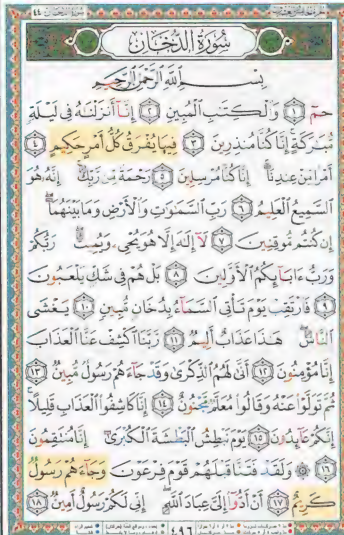 سُورَةُ الدُّخَانِ
بِسْمِ اللَّهِ الرَّحْمَٰنِ الرَّحِيمِ
حمٓ ١ وَالْكِتَٰبِ الْمُبِينِ ٢ إِنَّآ أَنزَلْنَٰهُ فِى لَيْلَةٍ
مُّبَٰرَكَةٍ إِنَّا كُنَّا مُنذِرِينَ ٣ فِيهَا يُفْرَقُ كُلُّ أَمْرٍ حَكِيمٍ ٤
أَمْرًا مِّنْ عِندِنَآ إِنَّا كُنَّا مُرْسِلِينَ ٥ رَحْمَةً مِّن رَّبِّكَ إِنَّهُۥ هُوَ
السَّمِيعُ الْعَلِيمُ ٦ رَبِّ السَّمَٰوَٰتِ وَالْأَرْضِ وَمَا بَيْنَهُمَآ
إِن كُنتُم مُّوقِنِينَ ٧ لَآ إِلَٰهَ إِلَّا هُوَ يُحْىِۦ وَيُمِيتُ رَبُّكُمْ
وَرَبُّ ءَابَآئِكُمُ الْأَوَّلِينَ ٨ بَلْ هُمْ فِى شَكٍّ يَلْعَبُونَ
٩ فَارْتَقِبْ يَوْمَ تَأْتِى السَّمَآءُ بِدُخَانٍ مُّبِينٍ ١٠ يَغْشَى
النَّاسَ هَٰذَا عَذَابٌ أَلِيمٌ ١١ رَّبَّنَا اكْشِفْ عَنَّا الْعَذَابَ
إِنَّا مُؤْمِنُونَ ١٢ أَنَّىٰ لَهُمُ الذِّكْرَىٰ وَقَدْ جَآءَهُمْ رَسُولٌ مُّبِينٌ ١٣
ثُمَّ تَوَلَّوْا عَنْهُ وَقَالُوا مُعَلَّمٌ مَّجْنُونٌ ١٤ إِنَّا كَاشِفُوا الْعَذَابِ قَلِيلًا
إِنَّكُمْ عَآئِدُونَ ١٥ يَوْمَ نَبْطِشُ الْبَطْشَةَ الْكُبْرَىٰٓ إِنَّا مُنتَقِمُونَ
١٦ ۞ وَلَقَدْ فَتَنَّا قَبْلَهُمْ قَوْمَ فِرْعَوْنَ وَجَآءَهُمْ رَسُولٌ
كَرِيمٌ ١٧ أَنْ أَدُّوٓا إِلَىَّ عِبَادَ اللَّهِ إِنِّى لَكُمْ رَسُولٌ أَمِينٌ ١٨
٤٩٦